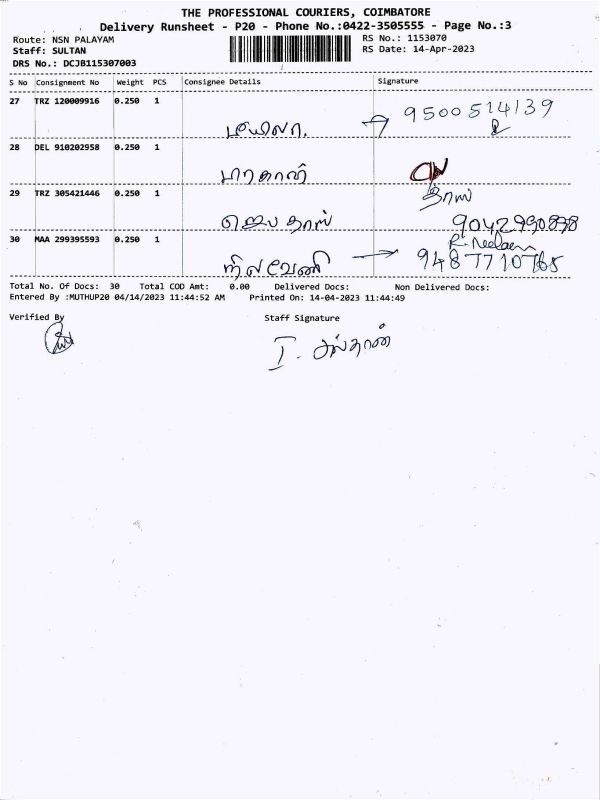 THE PROFESSIONAL COURIERS, COIMBATORE
Delivery Runsheet - P20 - Phone No.:0422-3505555 - Page No.:3
Route: NSN PALAYAM RS No.: 1153070
Staff: SULTAN RS Date: 14-Apr-2023
DRS No.: DCJB115307003
S No Consignment No Weight PCS Consignee Details Signature
27 TRZ 120009916 0.250 1 9500514139
28 DEL 910202958 0.250 1
29 TRZ 305421446 0.250 1
ஜெபதாஸ் தாஸ்
30 MAA 299395593 0.250 1 R. Neelaveni
நீலவேணி 9487710765
Total No. Of Docs: 30 Total COD Amt: 0.00 Delivered Docs: Non Delivered Docs:
Entered By :MUTHUP20 04/14/2023 11:44:52 AM Printed On: 14-04-2023 11:44:49
Verified By Staff Signature
I. சுல்தான்